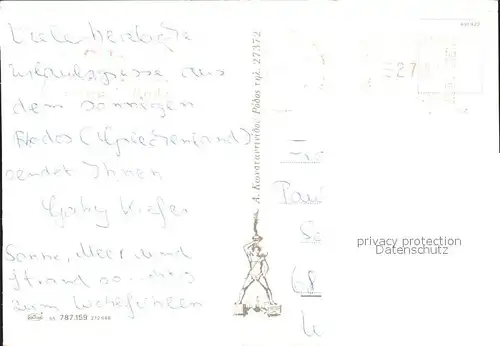 Viele herzliche
Urlaubsgrüsse aus
dem sonnigen
Rodos (Griechenland)
sendet Ihnen
Gaby Kiefer
Sonne, Meer und
Strand so richtig
zum Wohlfühlen
787.159
Α. Κωνσταντινίδη, Ρόδος τηλ. 27372
27
Pau
68
privacy protection
Datenschutz